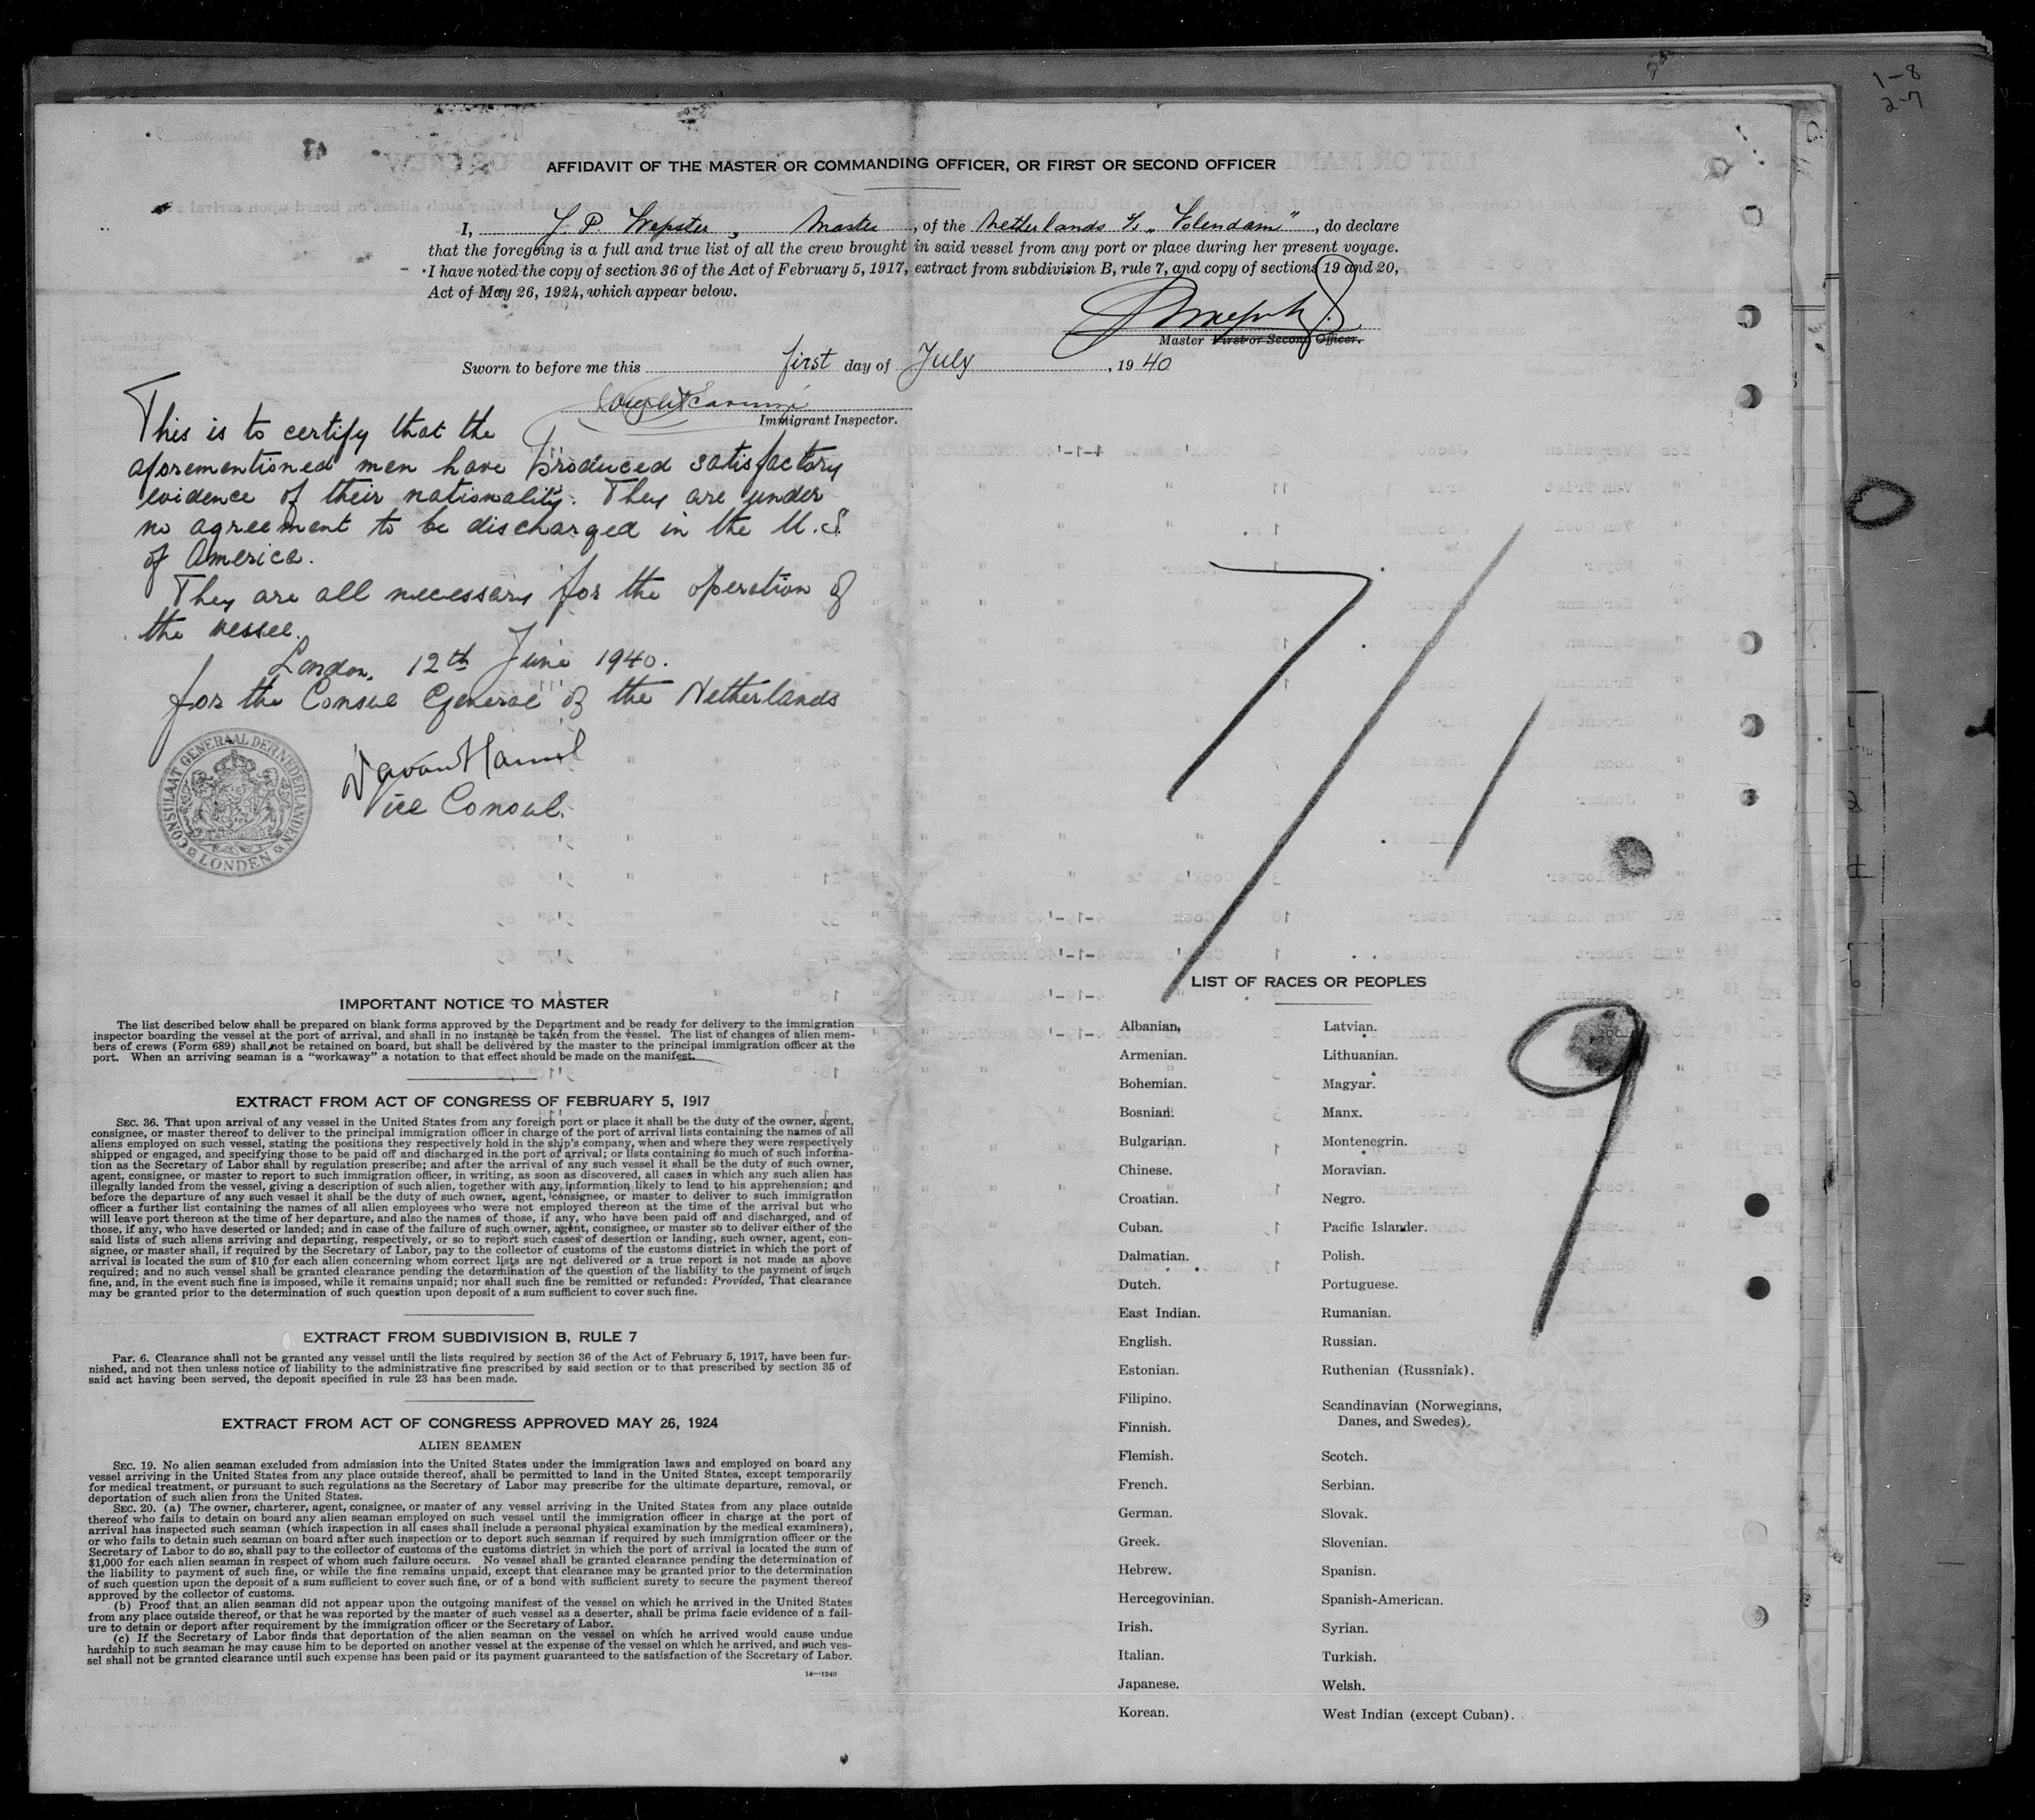 1-8
2-7
AFFIDAVIT OF THE MASTER OR COMMANDING OFFICER, OR FIRST OR SECOND OFFICER
I, J. P. Wepster, Master, of the Netherlands s/s „Volendam", do declare
that the foregoing is a full and true list of all the crew brought in said vessel from any port or place during her present voyage.
I have noted the copy of section 36 of the Act of February 5, 1917, extract from subdivision B, rule 7, and copy of sections 19 and 20,
Act of May 26, 1924, which appear below.
Master First or Second Officer.
Sworn to before me this first day of July, 1940
Immigrant Inspector.
This is to certify that the
aforementioned men have produced satisfactory
evidence of their nationality. They are under
no agreement to be discharged in the U.S.
of America.
They are all necessary for the operation of
the vessel.
London, 12th June 1940.
for the Consul General of the Netherlands
Vice Consul.
CONSULAAT GENERAAL DER NEDERLANDEN
LONDEN
7/1
9
IMPORTANT NOTICE TO MASTER
The list described below shall be prepared on blank forms approved by the Department and be ready for delivery to the immigration
inspector boarding the vessel at the port of arrival, and shall in no instance be taken from the vessel. The list of changes of alien mem-
bers of crews (Form 689) shall not be retained on board, but shall be delivered by the master to the principal immigration officer at the
port. When an arriving seaman is a "workaway" a notation to that effect should be made on the manifest.
EXTRACT FROM ACT OF CONGRESS OF FEBRUARY 5, 1917
SEC. 36. That upon arrival of any vessel in the United States from any foreign port or place it shall be the duty of the owner, agent,
consignee, or master thereof to deliver to the principal immigration officer in charge of the port of arrival lists containing the names of all
aliens employed on such vessel, stating the positions they respectively hold in the ship's company, when and where they were respectively
shipped or engaged, and specifying those to be paid off and discharged in the port of arrival; or lists containing so much of such informa-
tion as the Secretary of Labor shall by regulation prescribe; and after the arrival of any such vessel it shall be the duty of such owner,
agent, consignee, or master to report to such immigration officer, in writing, as soon as discovered, all cases in which any such alien has
illegally landed from the vessel, giving a description of such alien, together with any information likely to lead to his apprehension; and
before the departure of any such vessel it shall be the duty of such owner, agent, consignee, or master to deliver to such immigration
officer a further list containing the names of all alien employees who were not employed thereon at the time of the arrival but who
will leave port thereon at the time of her departure, and also the names of those, if any, who have been paid off and discharged, and of
those, if any, who have deserted or landed; and in case of the failure of such owner, agent, consignee, or master so to deliver either of the
said lists of such aliens arriving and departing, respectively, or so to report such cases of desertion or landing, such owner, agent, con-
signee, or master shall, if required by the Secretary of Labor, pay to the collector of customs of the customs district in which the port of
arrival is located the sum of $10 for each alien concerning whom correct lists are not delivered or a true report is not made as above
required; and no such vessel shall be granted clearance pending the determination of the question of the liability to the payment of such
fine, and, in the event such fine is imposed, while it remains unpaid; nor shall such fine be remitted or refunded: Provided, That clearance
may be granted prior to the determination of such question upon deposit of a sum sufficient to cover such fine.
EXTRACT FROM SUBDIVISION B, RULE 7
Par. 6. Clearance shall not be granted any vessel until the lists required by section 36 of the Act of February 5, 1917, have been fur-
nished, and not then unless notice of liability to the administrative fine prescribed by said section or to that prescribed by section 35 of
said act having been served, the deposit specified in rule 23 has been made.
EXTRACT FROM ACT OF CONGRESS APPROVED MAY 26, 1924
ALIEN SEAMEN
SEC. 19. No alien seaman excluded from admission into the United States under the immigration laws and employed on board any
vessel arriving in the United States from any place outside thereof, shall be permitted to land in the United States, except temporarily
for medical treatment, or pursuant to such regulations as the Secretary of Labor may prescribe for the ultimate departure, removal, or
deportation of such alien from the United States.
SEC. 20. (a) The owner, charterer, agent, consignee, or master of any vessel arriving in the United States from any place outside
thereof who fails to detain on board any alien seaman employed on such vessel until the immigration officer in charge at the port of
arrival has inspected such seaman (which inspection in all cases shall include a personal physical examination by the medical examiners),
or who fails to detain such seaman on board after such inspection or to deport such seaman if required by such immigration officer or the
Secretary of Labor to do so, shall pay to the collector of customs of the customs district in which the port of arrival is located the sum of
$1,000 for each alien seaman in respect of whom such failure occurs. No vessel shall be granted clearance pending the determination of
the liability to payment of such fine, or while the fine remains unpaid, except that clearance may be granted prior to the determination
of such question upon the deposit of a sum sufficient to cover such fine, or of a bond with sufficient surety to secure the payment thereof
approved by the collector of customs.
(b) Proof that an alien seaman did not appear upon the outgoing manifest of the vessel on which he arrived in the United States
from any place outside thereof, or that he was reported by the master of such vessel as a deserter, shall be prima facie evidence of a fail-
ure to detain or deport after requirement by the immigration officer or the Secretary of Labor.
(c) If the Secretary of Labor finds that deportation of the alien seaman on the vessel on which he arrived would cause undue
hardship to such seaman he may cause him to be deported on another vessel at the expense of the vessel on which he arrived, and such ves-
sel shall not be granted clearance until such expense has been paid or its payment guaranteed to the satisfaction of the Secretary of Labor.
14—1240
LIST OF RACES OR PEOPLES
Albanian.
Armenian.
Bohemian.
Bosnian.
Bulgarian.
Chinese.
Croatian.
Cuban.
Dalmatian.
Dutch.
East Indian.
English.
Estonian.
Filipino.
Finnish.
Flemish.
French.
German.
Greek.
Hebrew.
Hercegovinian.
Irish.
Italian.
Japanese.
Korean.
Latvian.
Lithuanian.
Magyar.
Manx.
Montenegrin.
Moravian.
Negro.
Pacific Islander.
Polish.
Portuguese.
Rumanian.
Russian.
Ruthenian (Russniak).
Scandinavian (Norwegians,
Danes, and Swedes).
Scotch.
Serbian.
Slovak.
Slovenian.
Spanish.
Spanish-American.
Syrian.
Turkish.
Welsh.
West Indian (except Cuban).